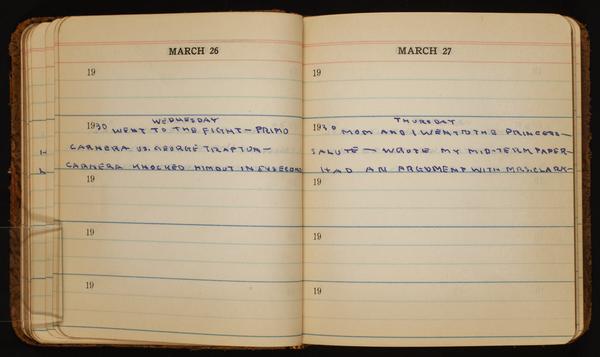 MARCH 26
19
WEDNESDAY
1930 WENT TO THE FIGHT - PRIMO
CARNERA VS. GEORGE TRAFTON -
CARNERA KNOCKED HIM OUT IN
19
19
19
MARCH 27
19
THURSDAY
1930 MOM AND I WENT TO THE PRINCESS -
SALUTE - WROTE MY MID-TERM PAPER -
HAD AN ARGUMENT WITH MRS. CLARK -
19
19
19